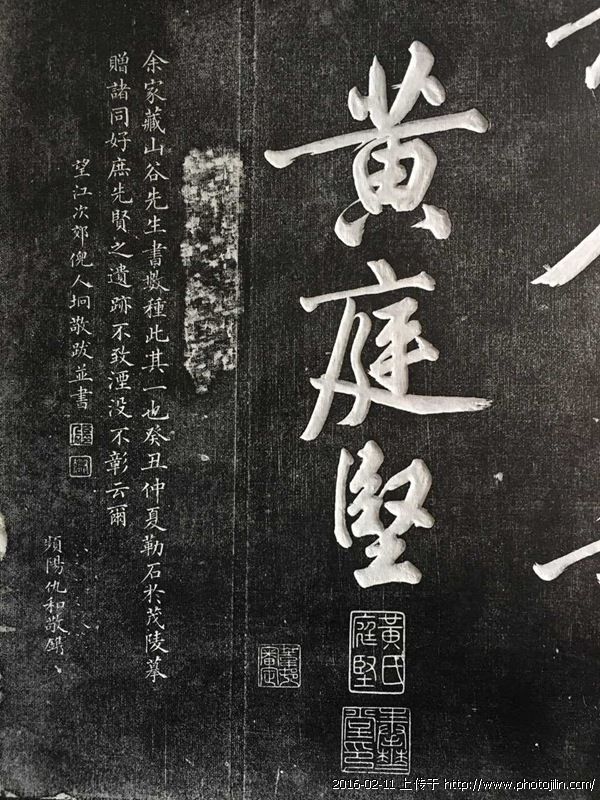 黄庭堅
黃氏庭堅
余家藏山谷先生書數種此其一也癸丑仲夏勒石於茂陵摹
贈諸同好庶先賢之遺跡不致湮没不彰云爾
望江次郊倪人垌敬跋並書
頻陽仇和敬鐫
2016-02-11 上传于 http://www.photojilin.com/